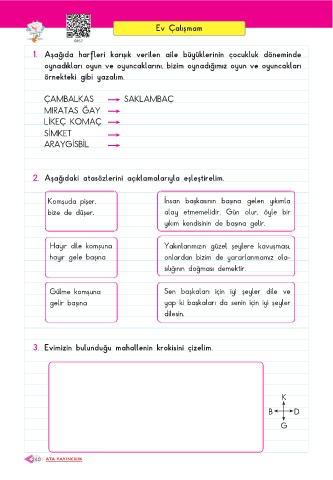 Ev Çalışmam
1. Aşağıda harfleri karışık verilen aile büyüklerinin çocukluk döneminde
oynadıkları oyun ve oyuncaklarını, bizim oynadığımız oyun ve oyuncakları
örnekteki gibi yazalım.
ÇAMBALKAS → SAKLAMBAÇ
MIRATAS ĞAY →
LİKEÇ KOMAÇ →
SİMKET →
ARAYGİSBİL →
2. Aşağıdaki atasözlerini açıklamalarıyla eşleştirelim.
Komşuda pişer,
bize de düşer.
İnsan başkasının başına gelen yıkımla
alay etmemelidir. Gün olur, öyle bir
yıkım kendisinin de başına gelir.
Hayır dile komşuna
hayır gele başına
Yakınlarımızın güzel şeylere kavuşması,
onlardan bizim de yararlanmamız ola-
sılığının doğması demektir.
Gülme komşuna
gelir başına
Sen başkaları için iyi şeyler dile ve
yap ki başkaları da senin için iyi şeyler
dilesin.
3. Evimizin bulunduğu mahallenin krokisini çizelim.
K
B D
G
ATA YAYINCILIK